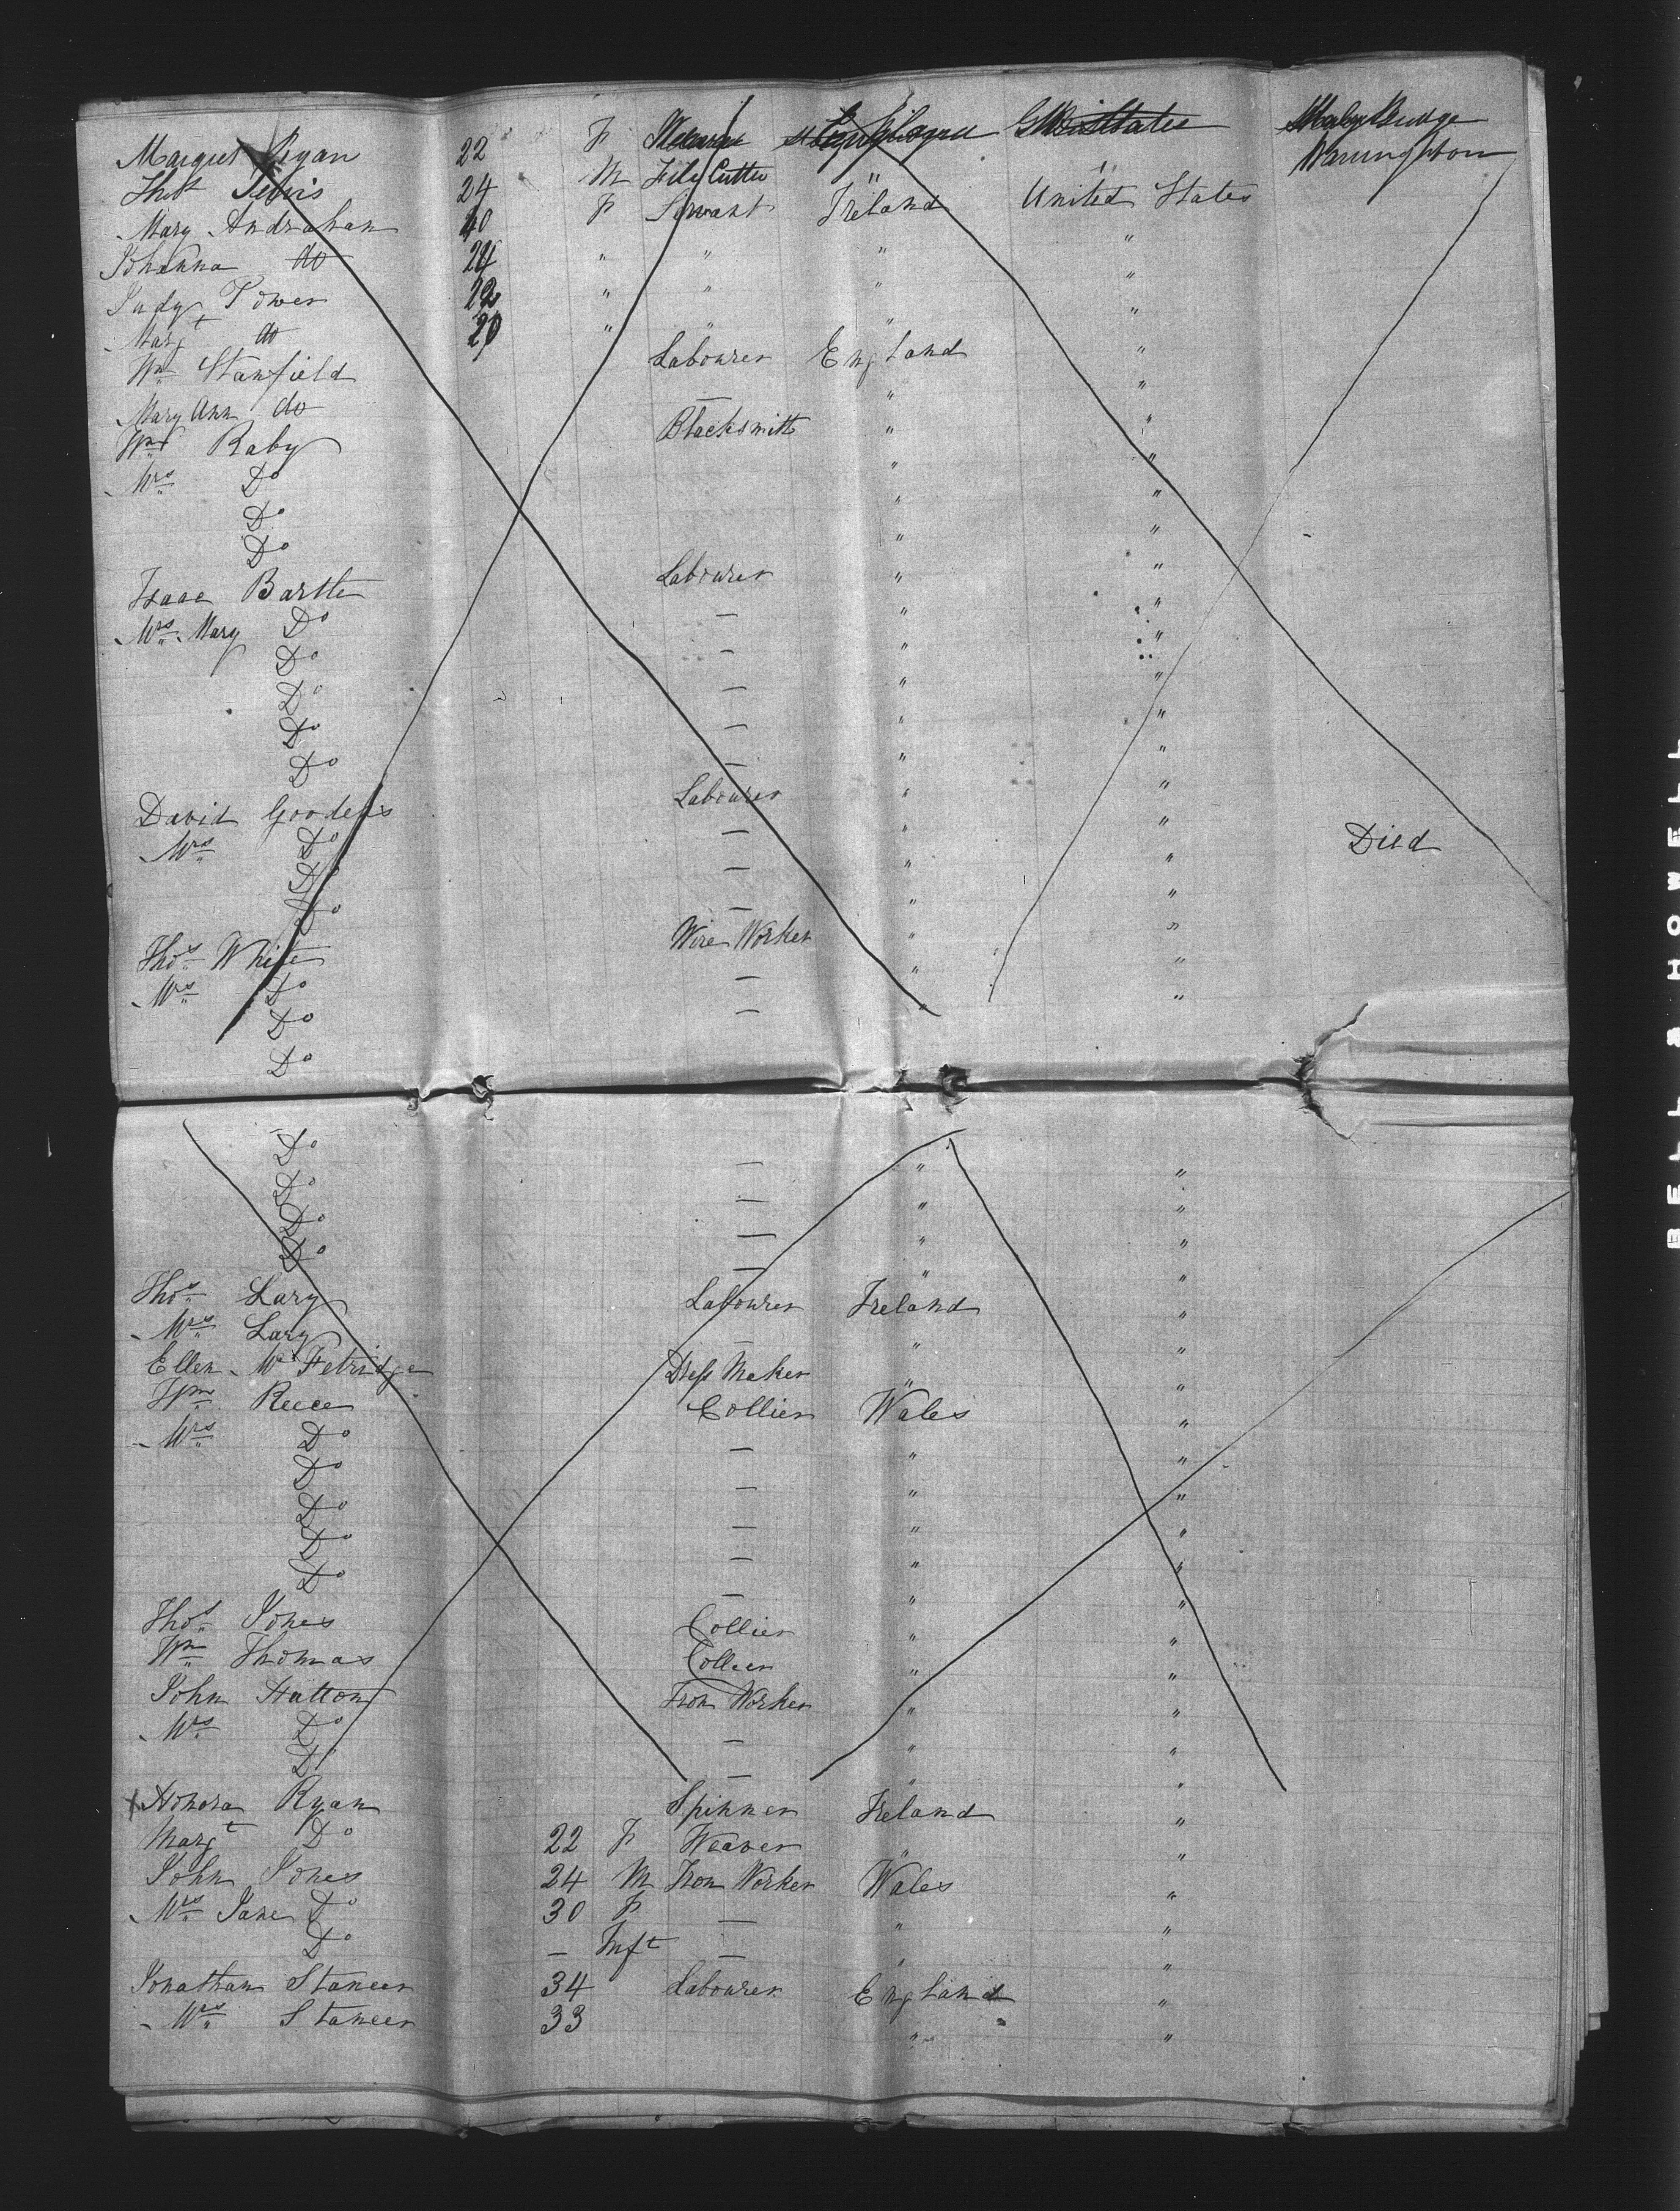 Margret Ryan 22 F
24 M File Cutter " "
Mary Andrahan 40 F Servant Ireland United States
Johanna do 24 " " " "
Judy Power 22 " " " "
Margt do 20 " " " "
Wm Stanfield Labourer England "
Mary Ann do — " "
Wm Raby Blacksmith " "
Mrs Do " "
Do " "
Do " "
Isaac Bartle Labourer " "
Mrs Mary Do — " "
Do — " "
Do — " "
Do — " "
Do — " "
David Labourer " "
Mrs Do — " " Died
Do — " "
Do — " "
Thos White Wire Worker " "
Mrs Do — " "
Do — " "
Do
Do — " "
Do — " "
Do — " "
Do — " "
Thos Lary Labourer Ireland "
Mrs Lary — " "
Ellen McFetridge Dress Maker " "
Wm Reece Collier Wales "
Mrs Do — " "
Do — " "
Do — " "
Do — " "
Do — " "
Thos Jones Collier " "
Wm Thomas Collier " "
John Hatton Iron Worker " "
Mrs Do — " "
Do — " "
x Honora Ryan Spinner Ireland "
Margt Do 22 F Weaver " "
John Jones 24 M Iron Worker Wales "
Mrs Jane Do 30 F — " "
Do — Inft — " "
Jonathan Stancer 34 Labourer England "
Mrs Stancer 33 " "
BELL & HOWELL